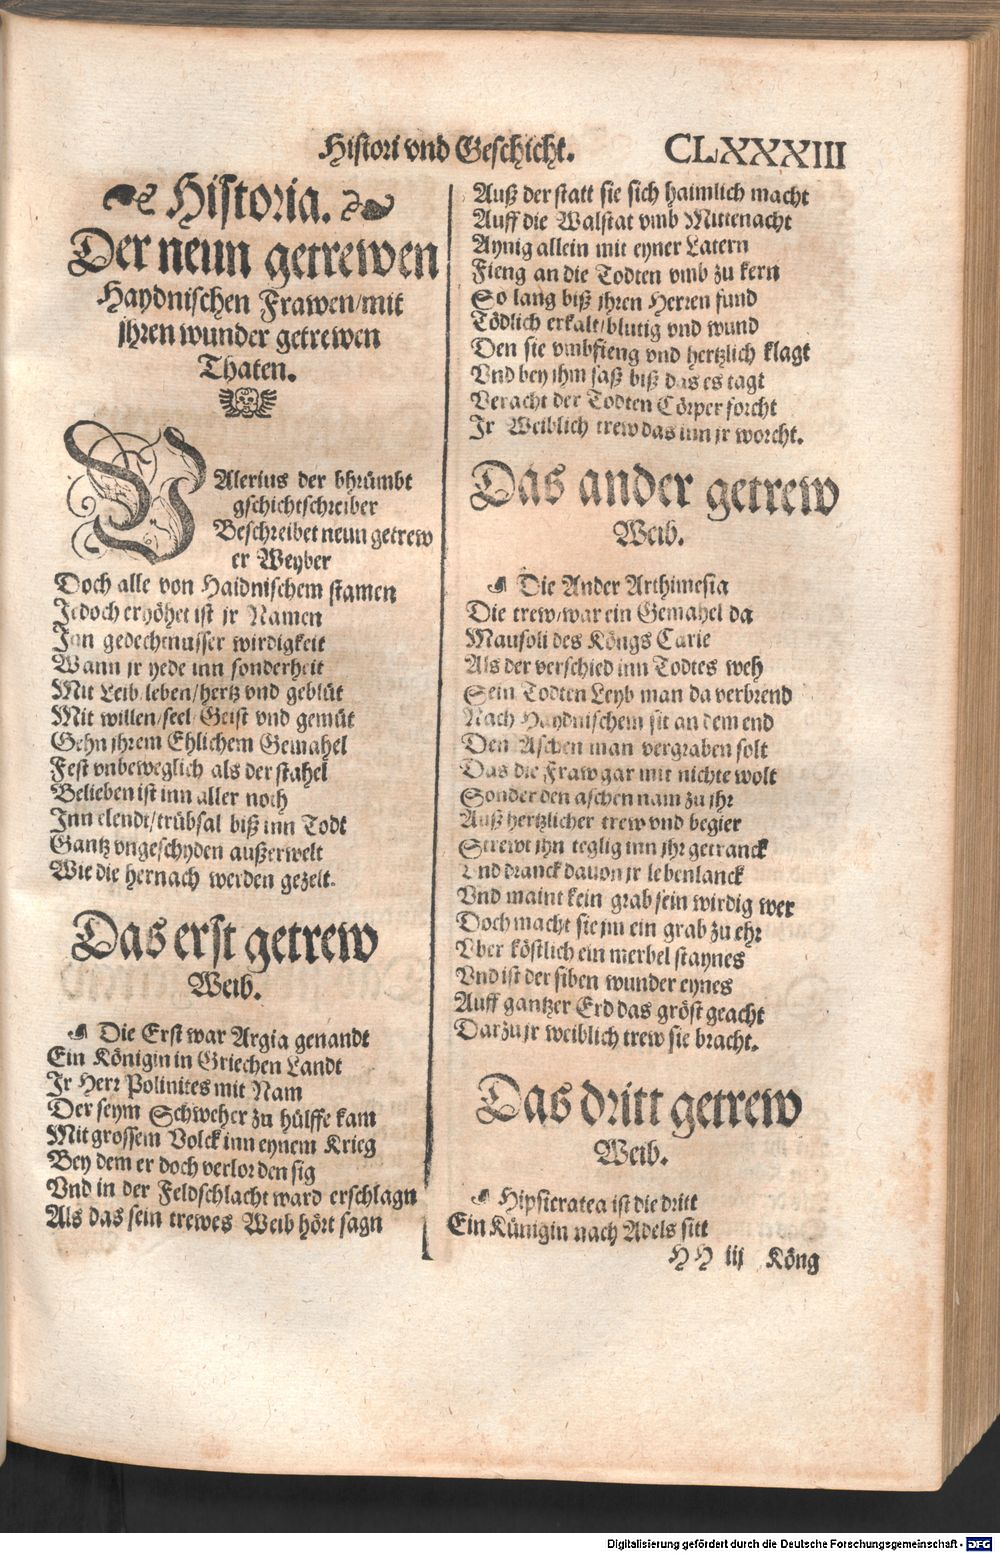 Histori vnd Geschicht. CLXXXIII
Historia.
Der neun getrewen
Haydnischen Frawen/mit
jhren wunder getrewen
Thaten.
VAlerius der bhrümbt
gschichtschreiber
Beschreibet neun getrew
er Weyber
Doch alle von Haidnischem stamen
Jedoch erhöhet ist jr Namen
Jnn gedechtnusser wirdigkeit
Wann jr yede inn sonderheit
Mit Leib/leben/hertz vnd geblüt
Mit willen/seel/Geist vnd gemüt
Gehn jhrem Ehlichem Gemahel
Fest vnbeweglich als der stahel
Belieben ist inn aller noth
Jnn elendt/trübsal biß inn Todt
Gantz vngeschyden außerwelt
Wie die hernach werden gezelt.
Das erst getrew
Weib.
Die Erst war Argia genandt
Ein Königin in Griechen Landt
Jr Herr Polinites mit Nam
Der seym Schweher zu hülffe kam
Mit grossem Volck inn eynem Krieg
Bey dem er doch verlor den sig
Vnd in der Feldschlacht ward erschlagn
Als das sein trewes Weib hört sagn
Auß der statt sie sich haimlich macht
Auff die Walstat vmb Mittenacht
Aynig allein mit eyner Latern
Fieng an die Todten vmb zu kern
So lang biß jhren Herren fund
Tödlich erkalt/blutig vnd wund
Den sie vmbfieng vnd hertzlich klagt
Vnd bey jhm saß biß das es tagt
Veracht der Todten Cörper forcht
Jr Weiblich trew das inn jr worcht.
Das ander getrew
Weib.
Die Ander Arthimesia
Die trew/war ein Gemahel da
Mausoli des Köngs Carie
Als der verschied inn Todtes weh
Sein Todten Leyb man da verbrend
Nach Haydnischem sit an dem end
Den Aschen man vergraben solt
Das die Fraw gar mit nichte wolt
Sonder den aschen nam zu jhr
Auß hertzlicher trew vnd begier
Strewt jhn teglig inn jhr getranck
Vnd dranck dauon jr lebenlanck
Vnd maint kein grab sein wirdig wer
Doch macht sie jm ein grab zu ehr
Vber köstlich ein merbel staynes
Vnd ist der siben wunder eynes
Auff gantzer Erd das gröst geacht
Darzu jr weiblich trew sie bracht.
Das dritt getrew
Weib.
Hipsicratea ist die dritt
Ein Künigin nach Adels sitt
HH iij Köng
Digitalisierung gefördert durch die Deutsche Forschungsgemeinschaft - DFG